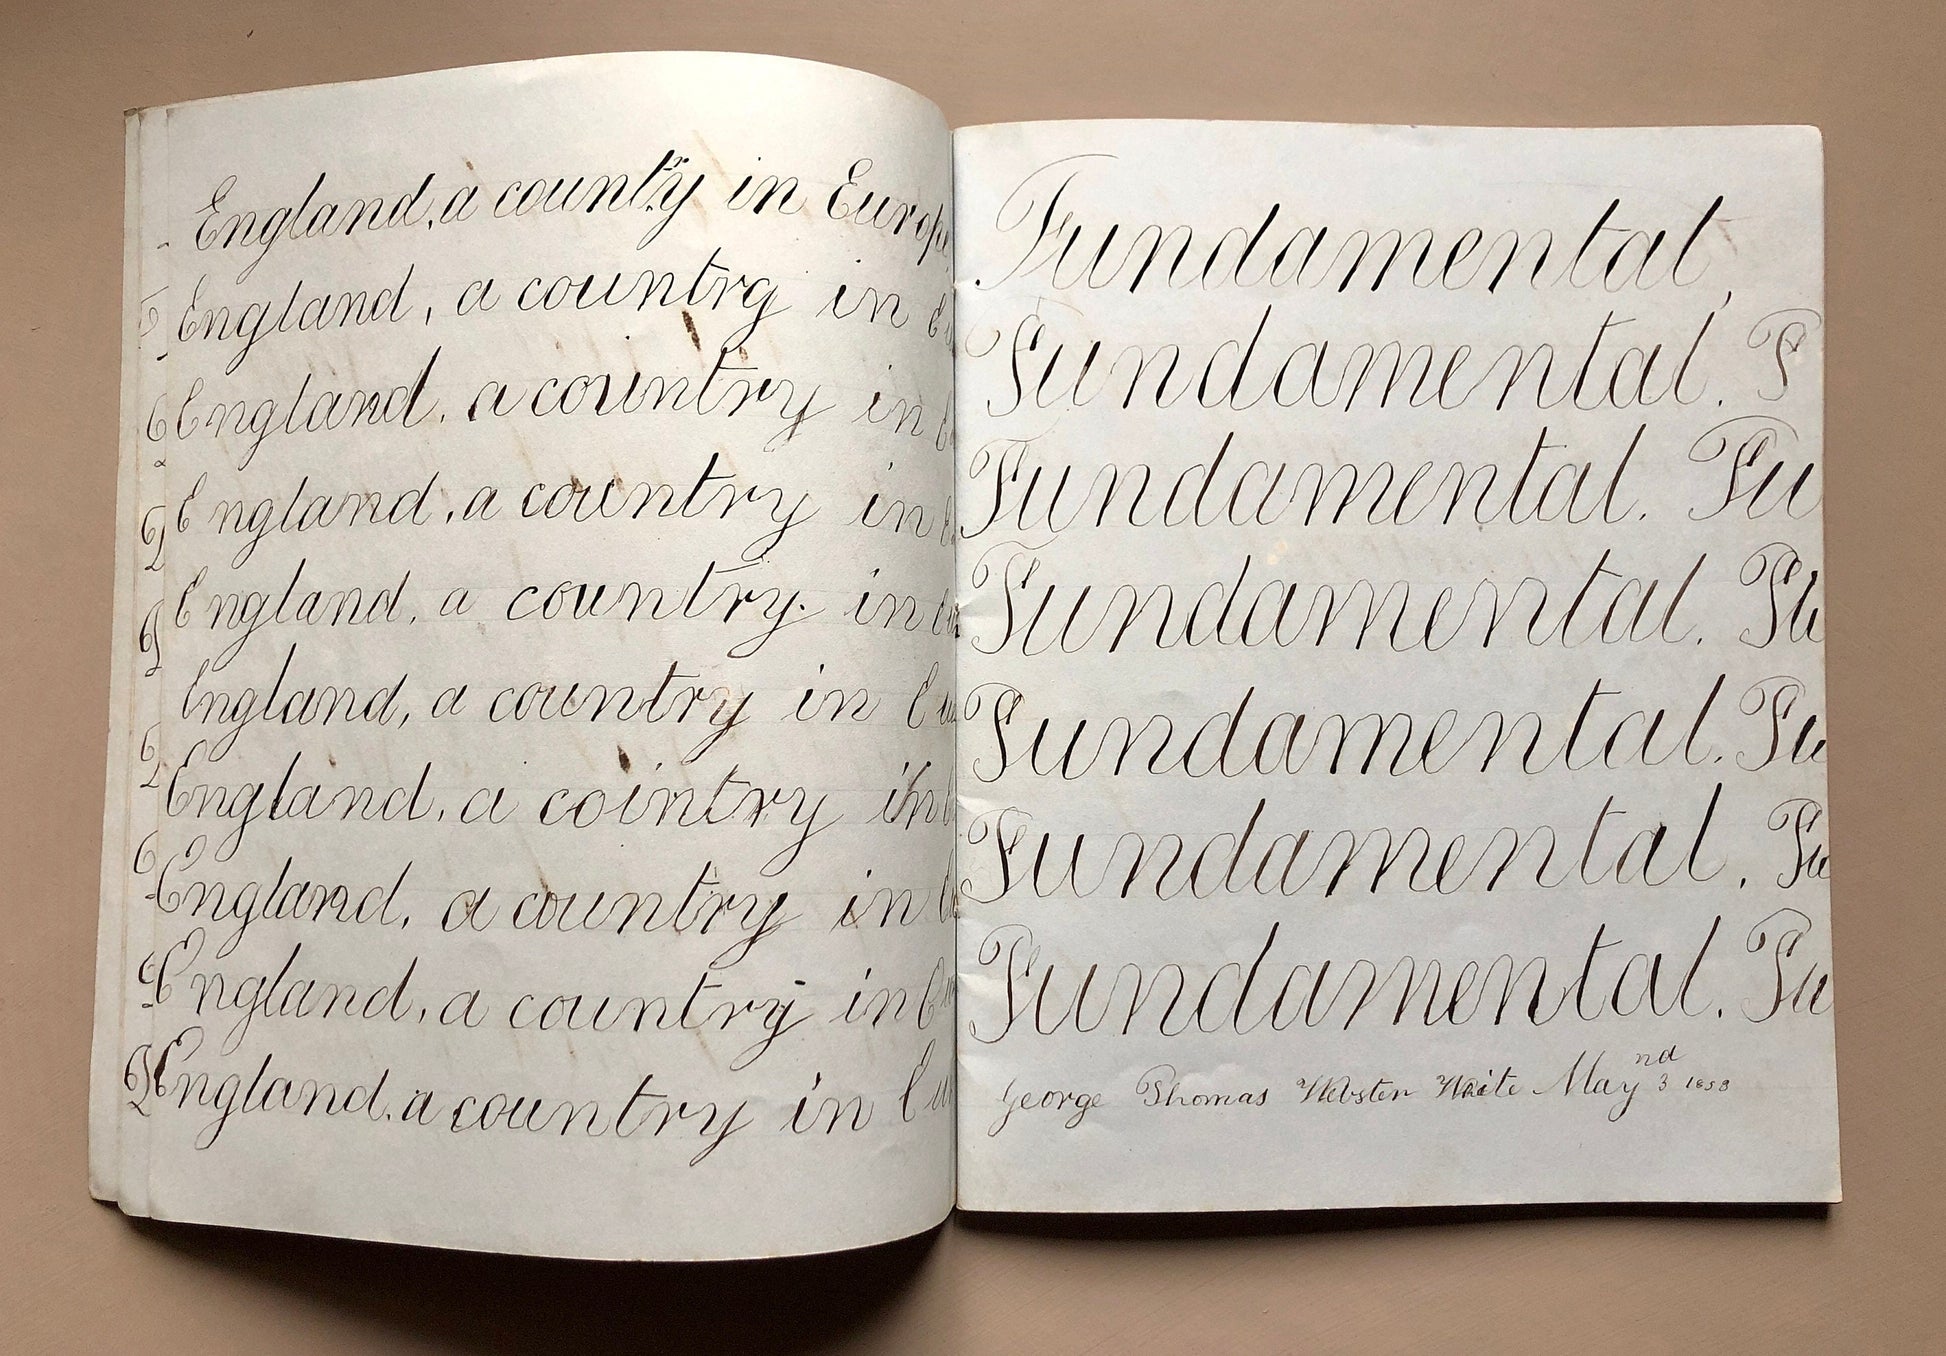 England, a county in Europe
England, a country in Eu
England, a country in E
England, a country in E
England, a country in Eu
England, a country in Eu
England, a cointry in E
England, a country in E
England, a country in Eu
England, a country in Eu
Fundamental,
Fundamental. F
Fundamental. Fu
Fundamental. Fu
Fundamental. Fu
Fundamental. Fu
Fundamental. Fu
George Thomas Webster White May 3nd 1858